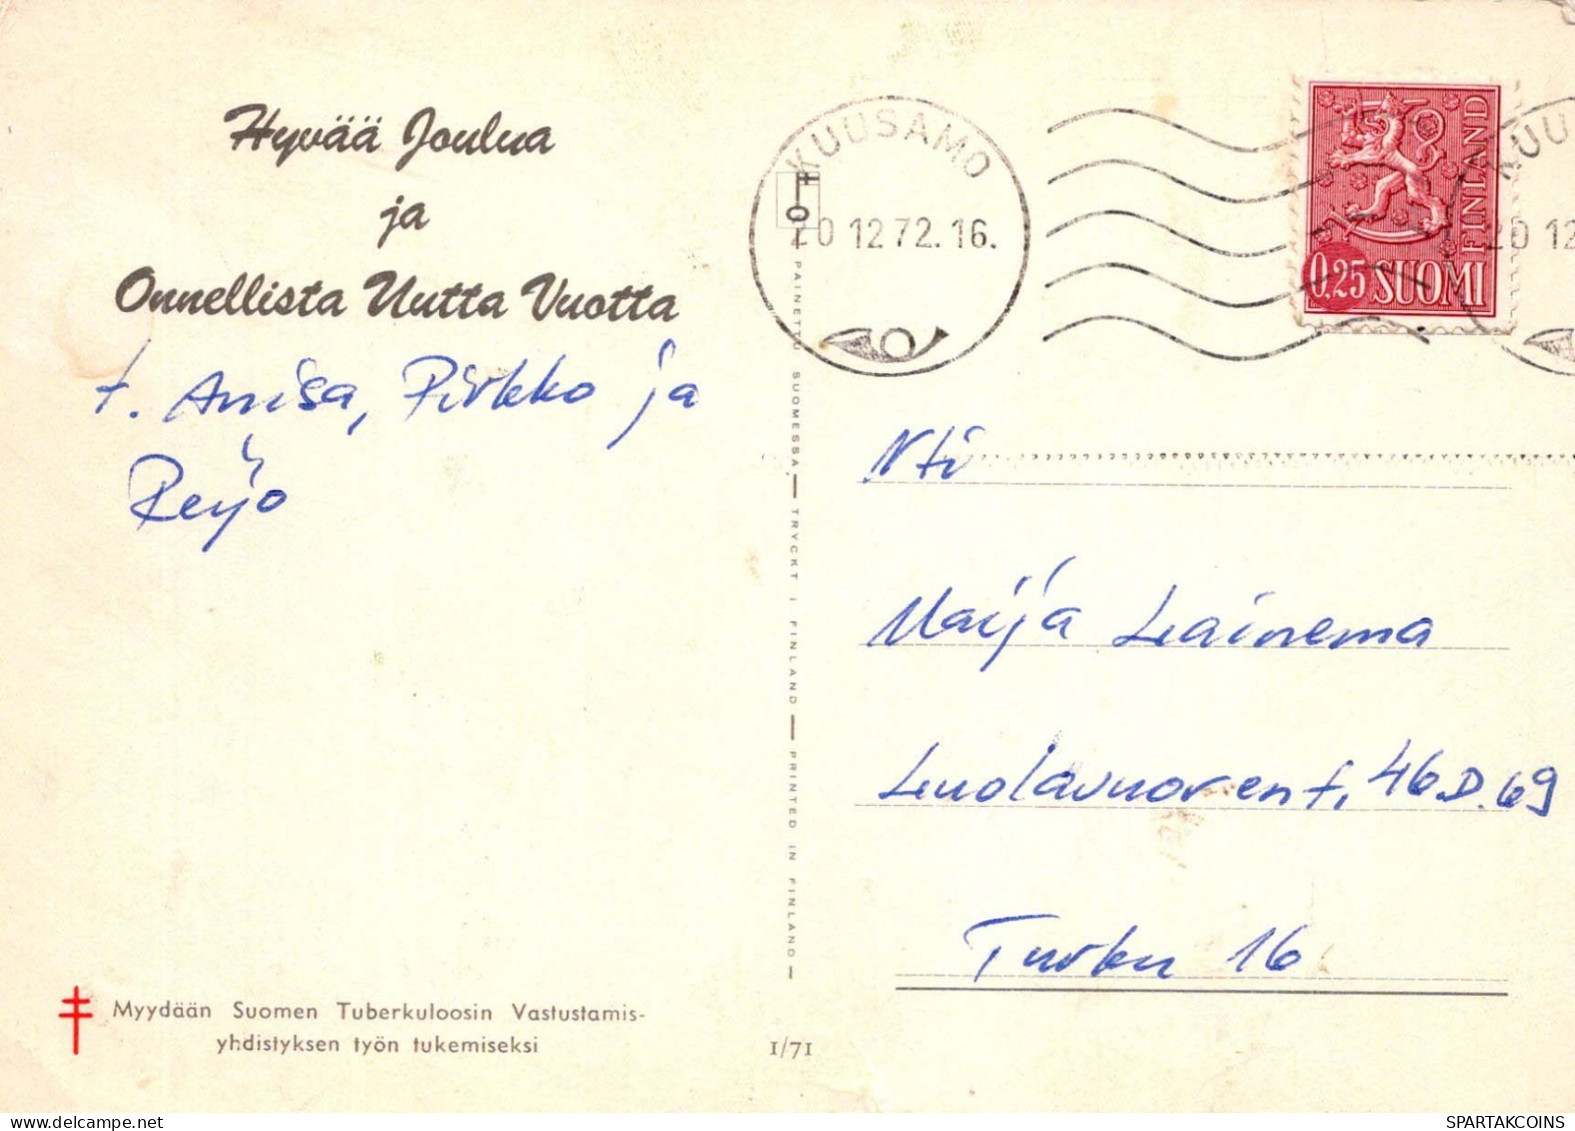 Hyvää Joulua
ja
Onnellista Uutta Vuotta
t. Anisa, Pirkko ja
Reijo
Myydään Suomen Tuberkuloosin Vastustamis-
yhdistyksen työn tukemiseksi
1/71
PAINETTU SUOMESSA — TRYCKT I FINLAND — PRINTED IN FINLAND —
KUUSAMO
20 12 72. 16.
FINLAND
0,25 SUOMI
KUU
20 12
Nti
Maija Lainema
Luolavuorent, 46 D. 69
Turku 16
SPARTAKCOINS